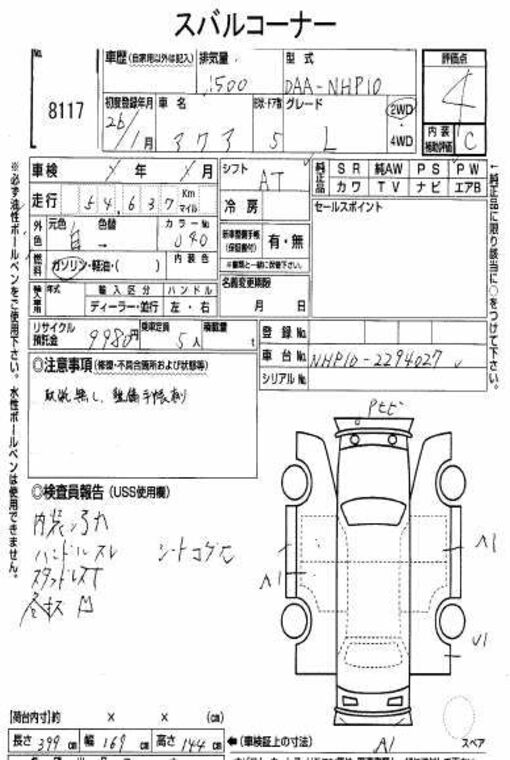 スバルコーナー
No. 8117
車歴 (自家用以外は記入) 排気量 1500 型式 DAA-NHP10 評価点 4
初度登録年月 26/1月 車名 373 形状・ドア数 5 グレード L 2WD 4WD 内装補助評価 C
車検 年 月 シフト AT 純正品 SR 純AW PS PW
カワ TV ナビ エアB
走行 54,637 Km マイル 冷房
セールスポイント
外色 元色 白 色替 → カラーNo. 040 新車整備手帳(保証書付) 有・無
※書類と一緒に設備下さい。
燃料 ガソリン・軽油・( ) 内装色
輸入車用 年式 輸入区分 ディーラー・並行 ハンドル 左・右 名義変更期限 月 日
リサイクル預託金 9980円 乗車定員 5人 積載量 t 登録No.
車台No. NHP10-2294027
シリアルNo.
◎注意事項 (修理・不具合箇所および状態等)
取説無し、整備手帳有り
◎検査員報告 (USS使用欄)
内装ヨゴレ
ハンドルスレ シートコゲ穴
スタッドレスT
各キズ 凹
Pヒビ
A1
A1
U1
A1
スペア
[荷台内寸]約 × × (cm)
長さ 399 cm 幅 169 cm 高さ 144 cm ←(車検証上の寸法)
※必ず油性ボールペンをご使用下さい。水性ボールペンは使用できません。
←純正品に限り該当に○をつけて下さい。